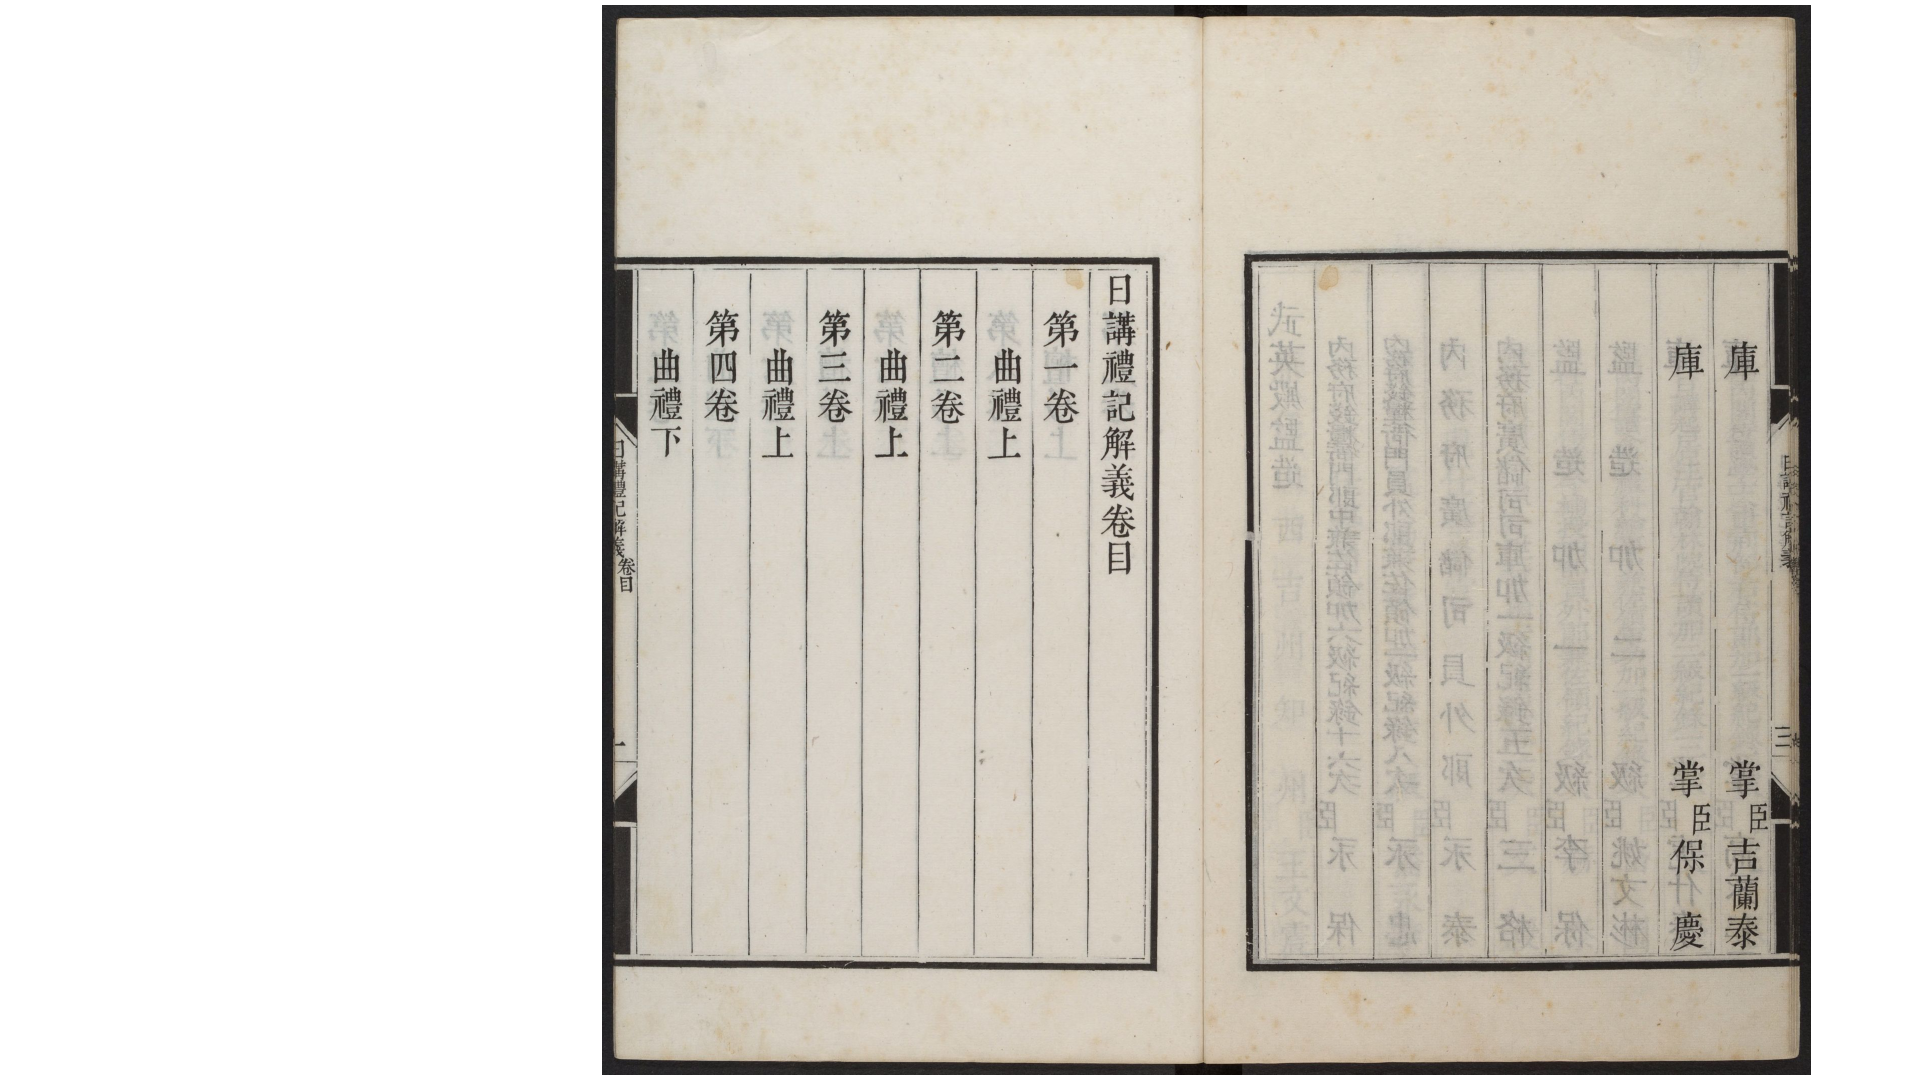 庫掌臣吉蘭泰
庫掌臣保慶
日講禮記解義卷目
第一卷
曲禮上
第二卷
曲禮上
第三卷
曲禮上
第四卷
曲禮下
日講禮記解義 卷目 一